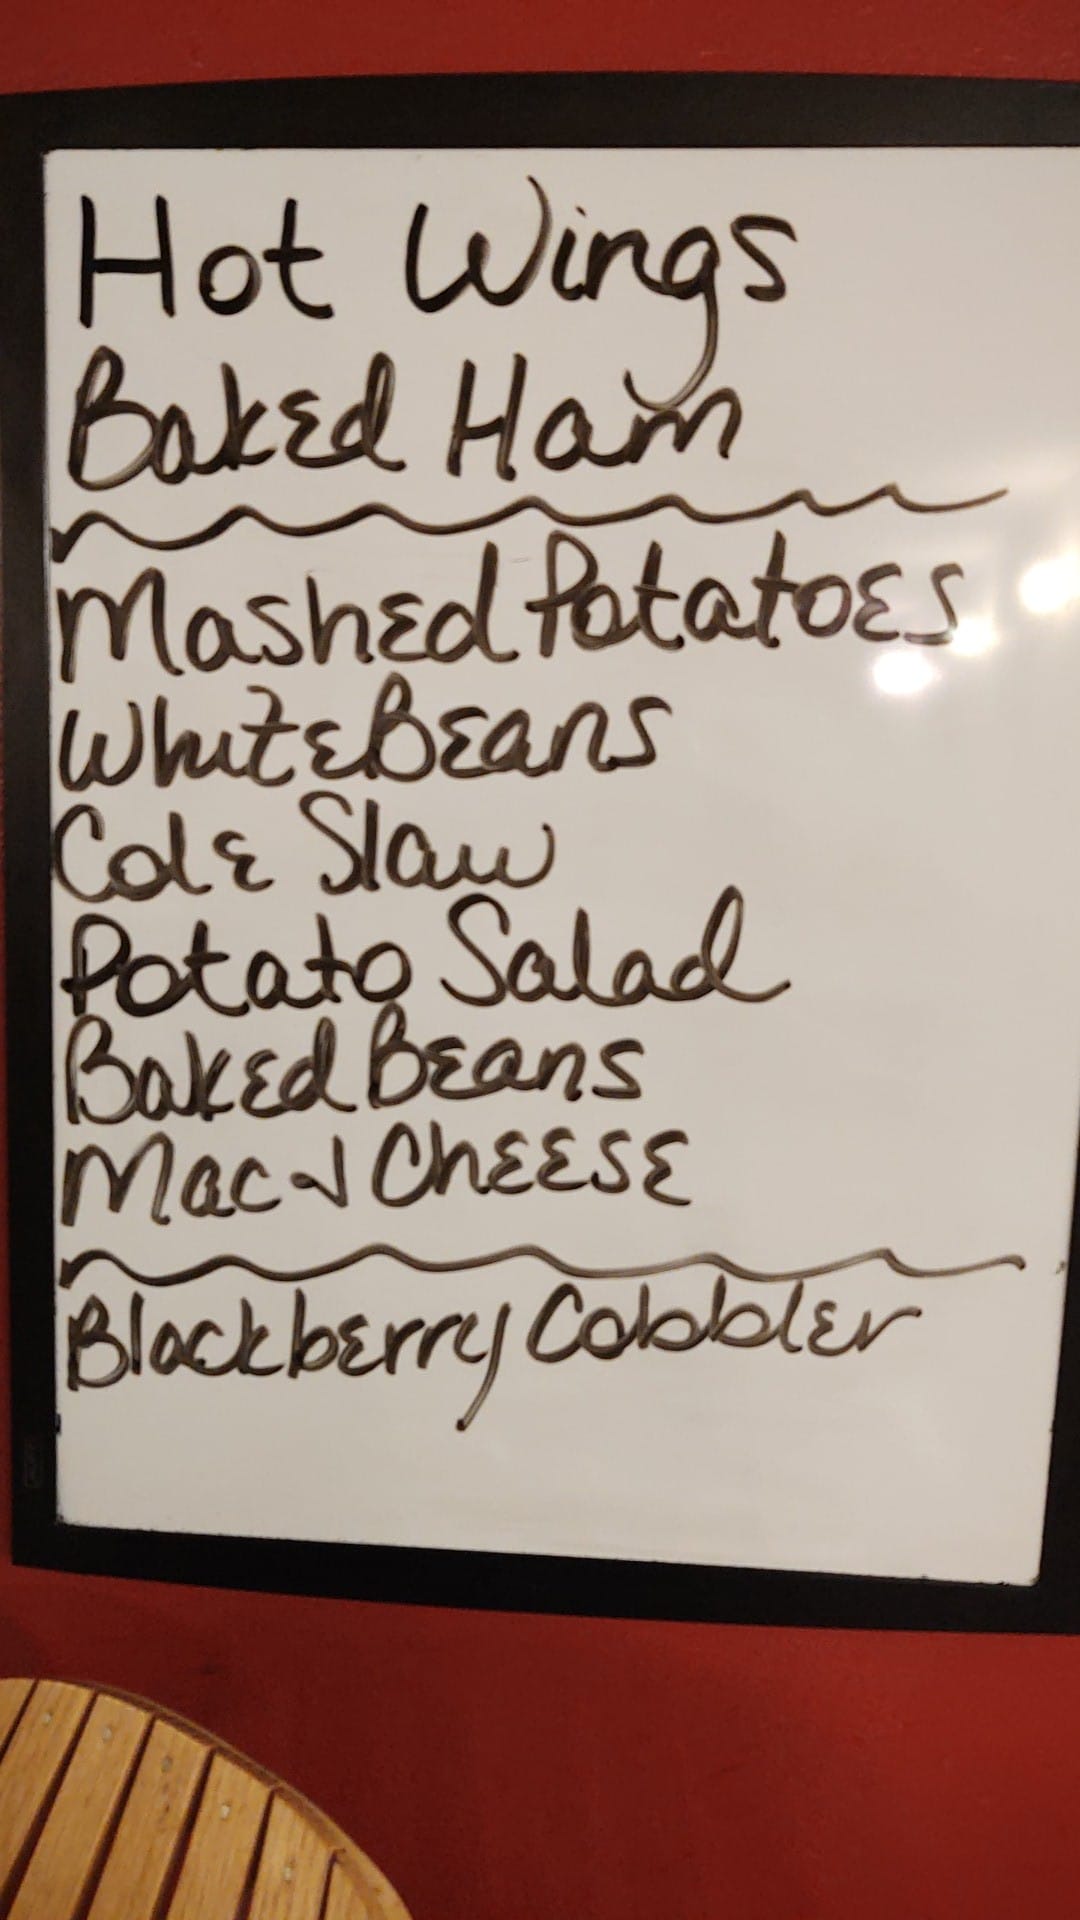 Hot Wings
Baked Ham
Mashed Potatoes
White Beans
Cole Slaw
Potato Salad
Baked Beans
Mac & Cheese
Blackberry Cobbler